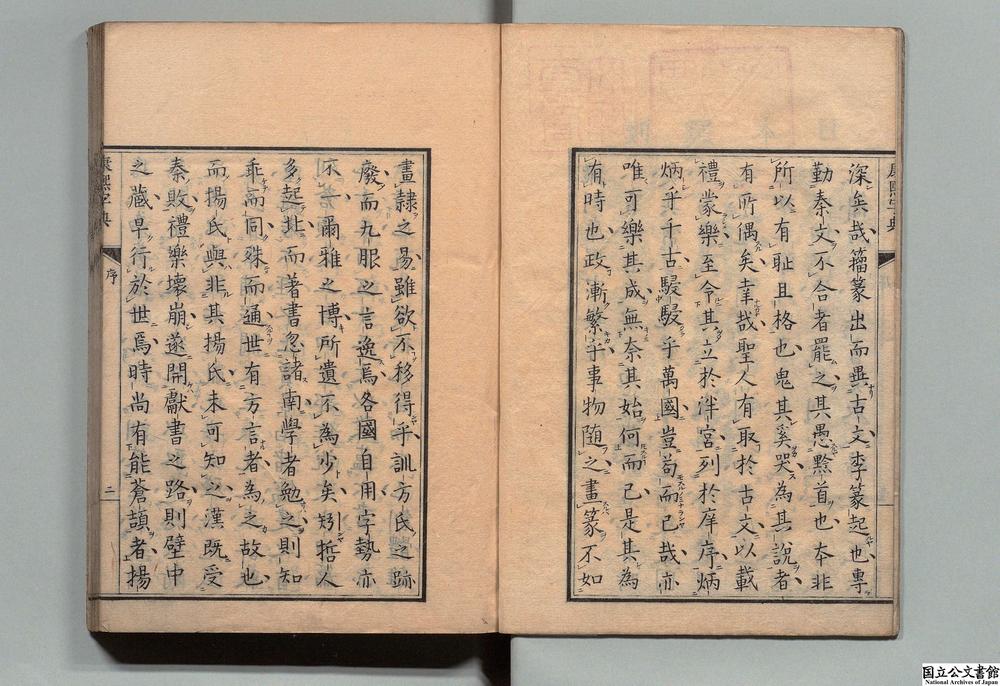 深矣哉籀篆出而異古文李篆起也專
勤秦文不合者罷之其愚黔首也本非
所以有耻且格也鬼其奚哭為其說者
有所偶矣幸哉聖人有取於古文以載
禮蒙樂至令其立於泮宮列於庠序炳
炳乎千古駸駸乎萬國豈苟而已哉亦
唯可樂其成無奈其始何而已是其為
有時也政漸繁乎事物随之畫篆不如
畫隸之易雖欲不移得乎訓方氏之跡
廢而九服之言逸焉各國自用字勢亦
不一爾雅之博所遺不為少矣矧哲人
多起北而著書忽諸南學者勉之則知
乖而同殊而通世有方言者為之故也
而揚氏與非其揚氏未可知之漢既受
秦敗禮樂壞崩遂開獻書之路則壁中
之藏早行於世焉時尚有能蒼頡者揚
康熙字典
序
二
国立公文書館
National Archives of Japan